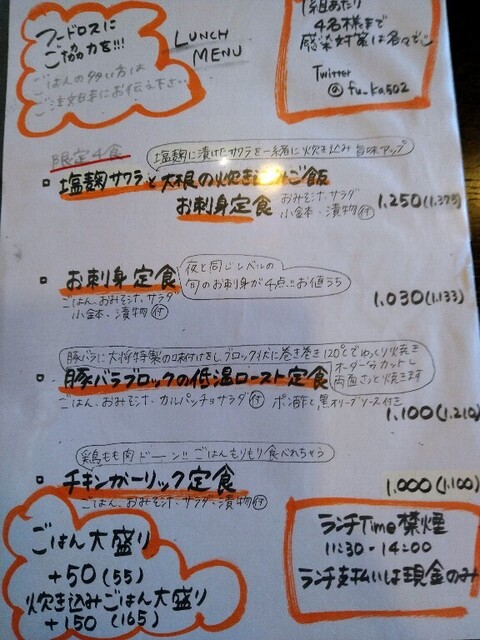 フードロスに
ご協力を!!!
ごはんの少ない方は
ご注文時にお伝え下さい
LUNCH
MENU
1組あたり
4名様まで
感染対策は各々で
Twitter
@fu_ka502
限定4食
塩麹に漬けたサワラを一緒に炊き込み 旨味アップ
塩麹サワラと大根の炊き込みご飯
お刺身定食
おみそ汁、サラダ
小鉢、漬物付
1,250(1,375)
お刺身定食
夜と同じレベルの
旬のお刺身が4点!!お値うち
ごはん、おみそ汁、サラダ
小鉢、漬物付
1,030(1,133)
豚バラに大将特製の味付けをし、ブロック状に巻き巻き120℃でゆっくり焼き
オーダーからカットし
両面さっと焼きます
豚バラブロックの低温ロースト定食
ごはん、おみそ汁、カルパッチョサラダ付 ポン酢と黒オリーブソース付き
1,100(1,210)
鶏もも肉ドーン!! ごはんもりもり食べれちゃう
チキンガーリック定食
ごはん、おみそ汁、サラダ、漬物付
1,000(1,100)
ごはん大盛り
+50(55)
炊き込みごはん大盛り
+150(165)
ランチTime禁煙
11:30-14:00
ランチ支払いは現金のみ